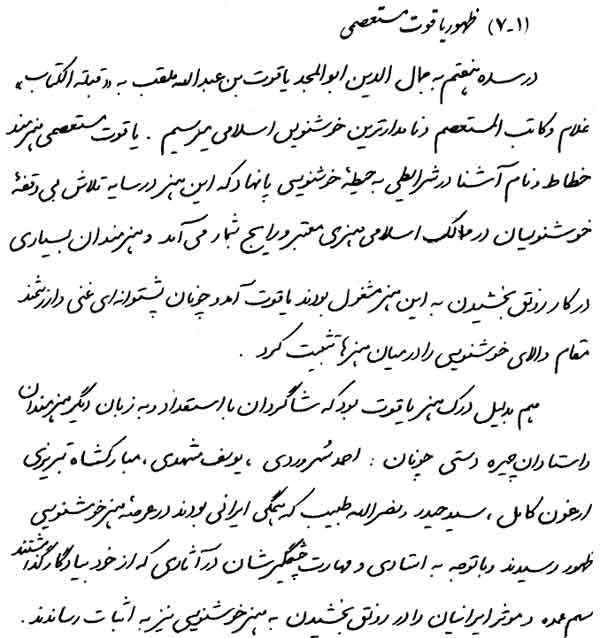 (۷-۱) ظهور یاقوت مستعصمی
در سده هفتم به جمال الدین ابوالمجد یاقوت بن عبدالله ملقب به «قبلة الکتاب»
غلام و کاتب المستعصم و نامدارترین خوشنویس اسلامی میرسیم . یاقوت مستعصمی هنرمند
خطاط و نام آشنا در شرایطی به حیطهٔ خوشنویسی پا نهاد که این هنر در سایه تلاش بی وقفهٔ
خوشنویسان در ممالک اسلامی هنری معتبر و رایج شمار می آمد و هنرمندان بسیاری
در کار رونق بخشیدن به این هنر مشغول بودند یاقوت آمد و چونان پشتوانه ای غنی و ارزشمند
مقام والای خوشنویسی را در میان هنرها تثبیت کرد .
هم بدلیل درک هنر یاقوت بود که شاگردان با استعداد و به زبان دیگر هنرمندان
و استادان چیره دستی چونان : احمد سهروردی ، یوسف مشهدی ، مبارکشاه تبریزی
ارغون کامل ، سید حیدر و نصرالله طبیب که همگی ایرانی بودند در عرصهٔ هنر خوشنویسی
ظهور رسیدند و با توجه به استادی و مهارت چشمگیرشان در آثاری که از خود بیادگار گذاشتند
سهم عمده و موثر ایرانیان را در رونق بخشیدن به هنر خوشنویسی نیز به اثبات رساندند .